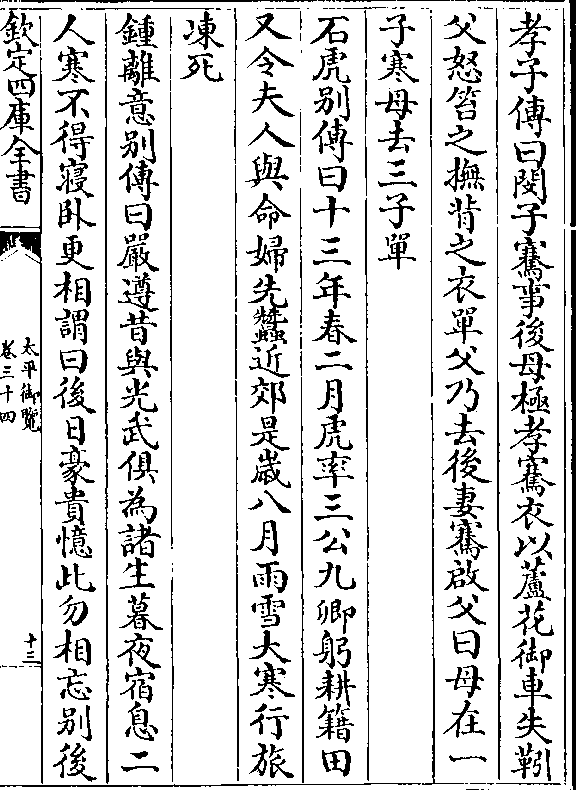 孝子傳曰閔子騫事後母極孝騫衣以蘆花御車失靷
父怒笞之撫背之衣單父乃去後妻騫啟父曰母在一
子寒母去三子單
石虎别傳曰十三年春二月虎率三公九卿躬耕籍田
又令夫人與命婦先蠶近郊是嵗八月雨雪大寒行旅
凍死
鍾離意别傳曰嚴遵昔與光武俱為諸生暮夜宿息二
人寒不得寢卧更相謂曰後日豪貴憶此勿相忘别後
欽定四庫全書
太平御覽
卷三十四
十三